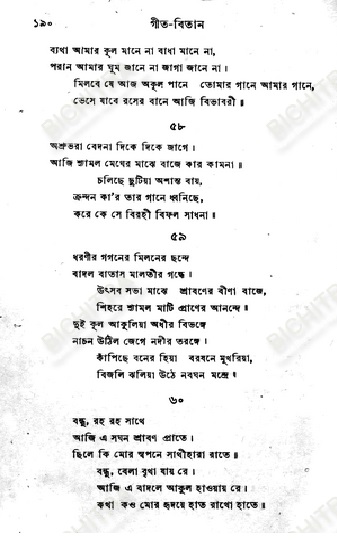 ১৯০ গীত-বিতান
ব্যথা আমার কূল মানে না বাধা মানে না,
পরান আমার ঘুম জানে না জাগা জানে না।
মিলবে যে আজ অকূল পানে তোমার গানে আমার গানে,
ভেসে যাবে রসের বানে আজি বিভাবরী॥
৫৮
অশ্রুভরা বেদনা দিকে দিকে জাগে।
আজি শ্যামল মেঘের মাঝে বাজে কার কামনা॥
চলিছে ছুটিয়া অশান্ত বায়,
ক্রন্দন কা'র তার গানে ধ্বনিছে,
করে কে সে বিরহী বিফল সাধনা॥
৫৯
ধরণীর গগনের মিলনের ছন্দে
বাদল বাতাস মাতে মালতীর গন্ধে।
উৎসব সভা মাঝে শ্রাবণের বীণা বাজে,
শিহরে শ্যামল মাটি প্রাণের আনন্দে॥
দুই কূল আকুলিয়া অধীর বিভঙ্গে
নাচন উঠিল জেগে নদীর তরঙ্গে।
কাঁপিছে বনের হিয়া বরষনে মুখরিয়া,
বিজলি ঝলিয়া উঠে নবঘন মন্দ্রে॥
৬০
বন্ধু, রহ রহ সাথে
আজি এ সঘন শ্রাবণ প্রাতে।
ছিলে কি মোর স্বপনে সাথীহারা রাতে॥
বন্ধু, বেলা বৃথা যায় রে।
আজি এ বাদলে আকুল হাওয়ায় রে।
কথা কও মোর হৃদয়ে হাত রাখো হাতে॥